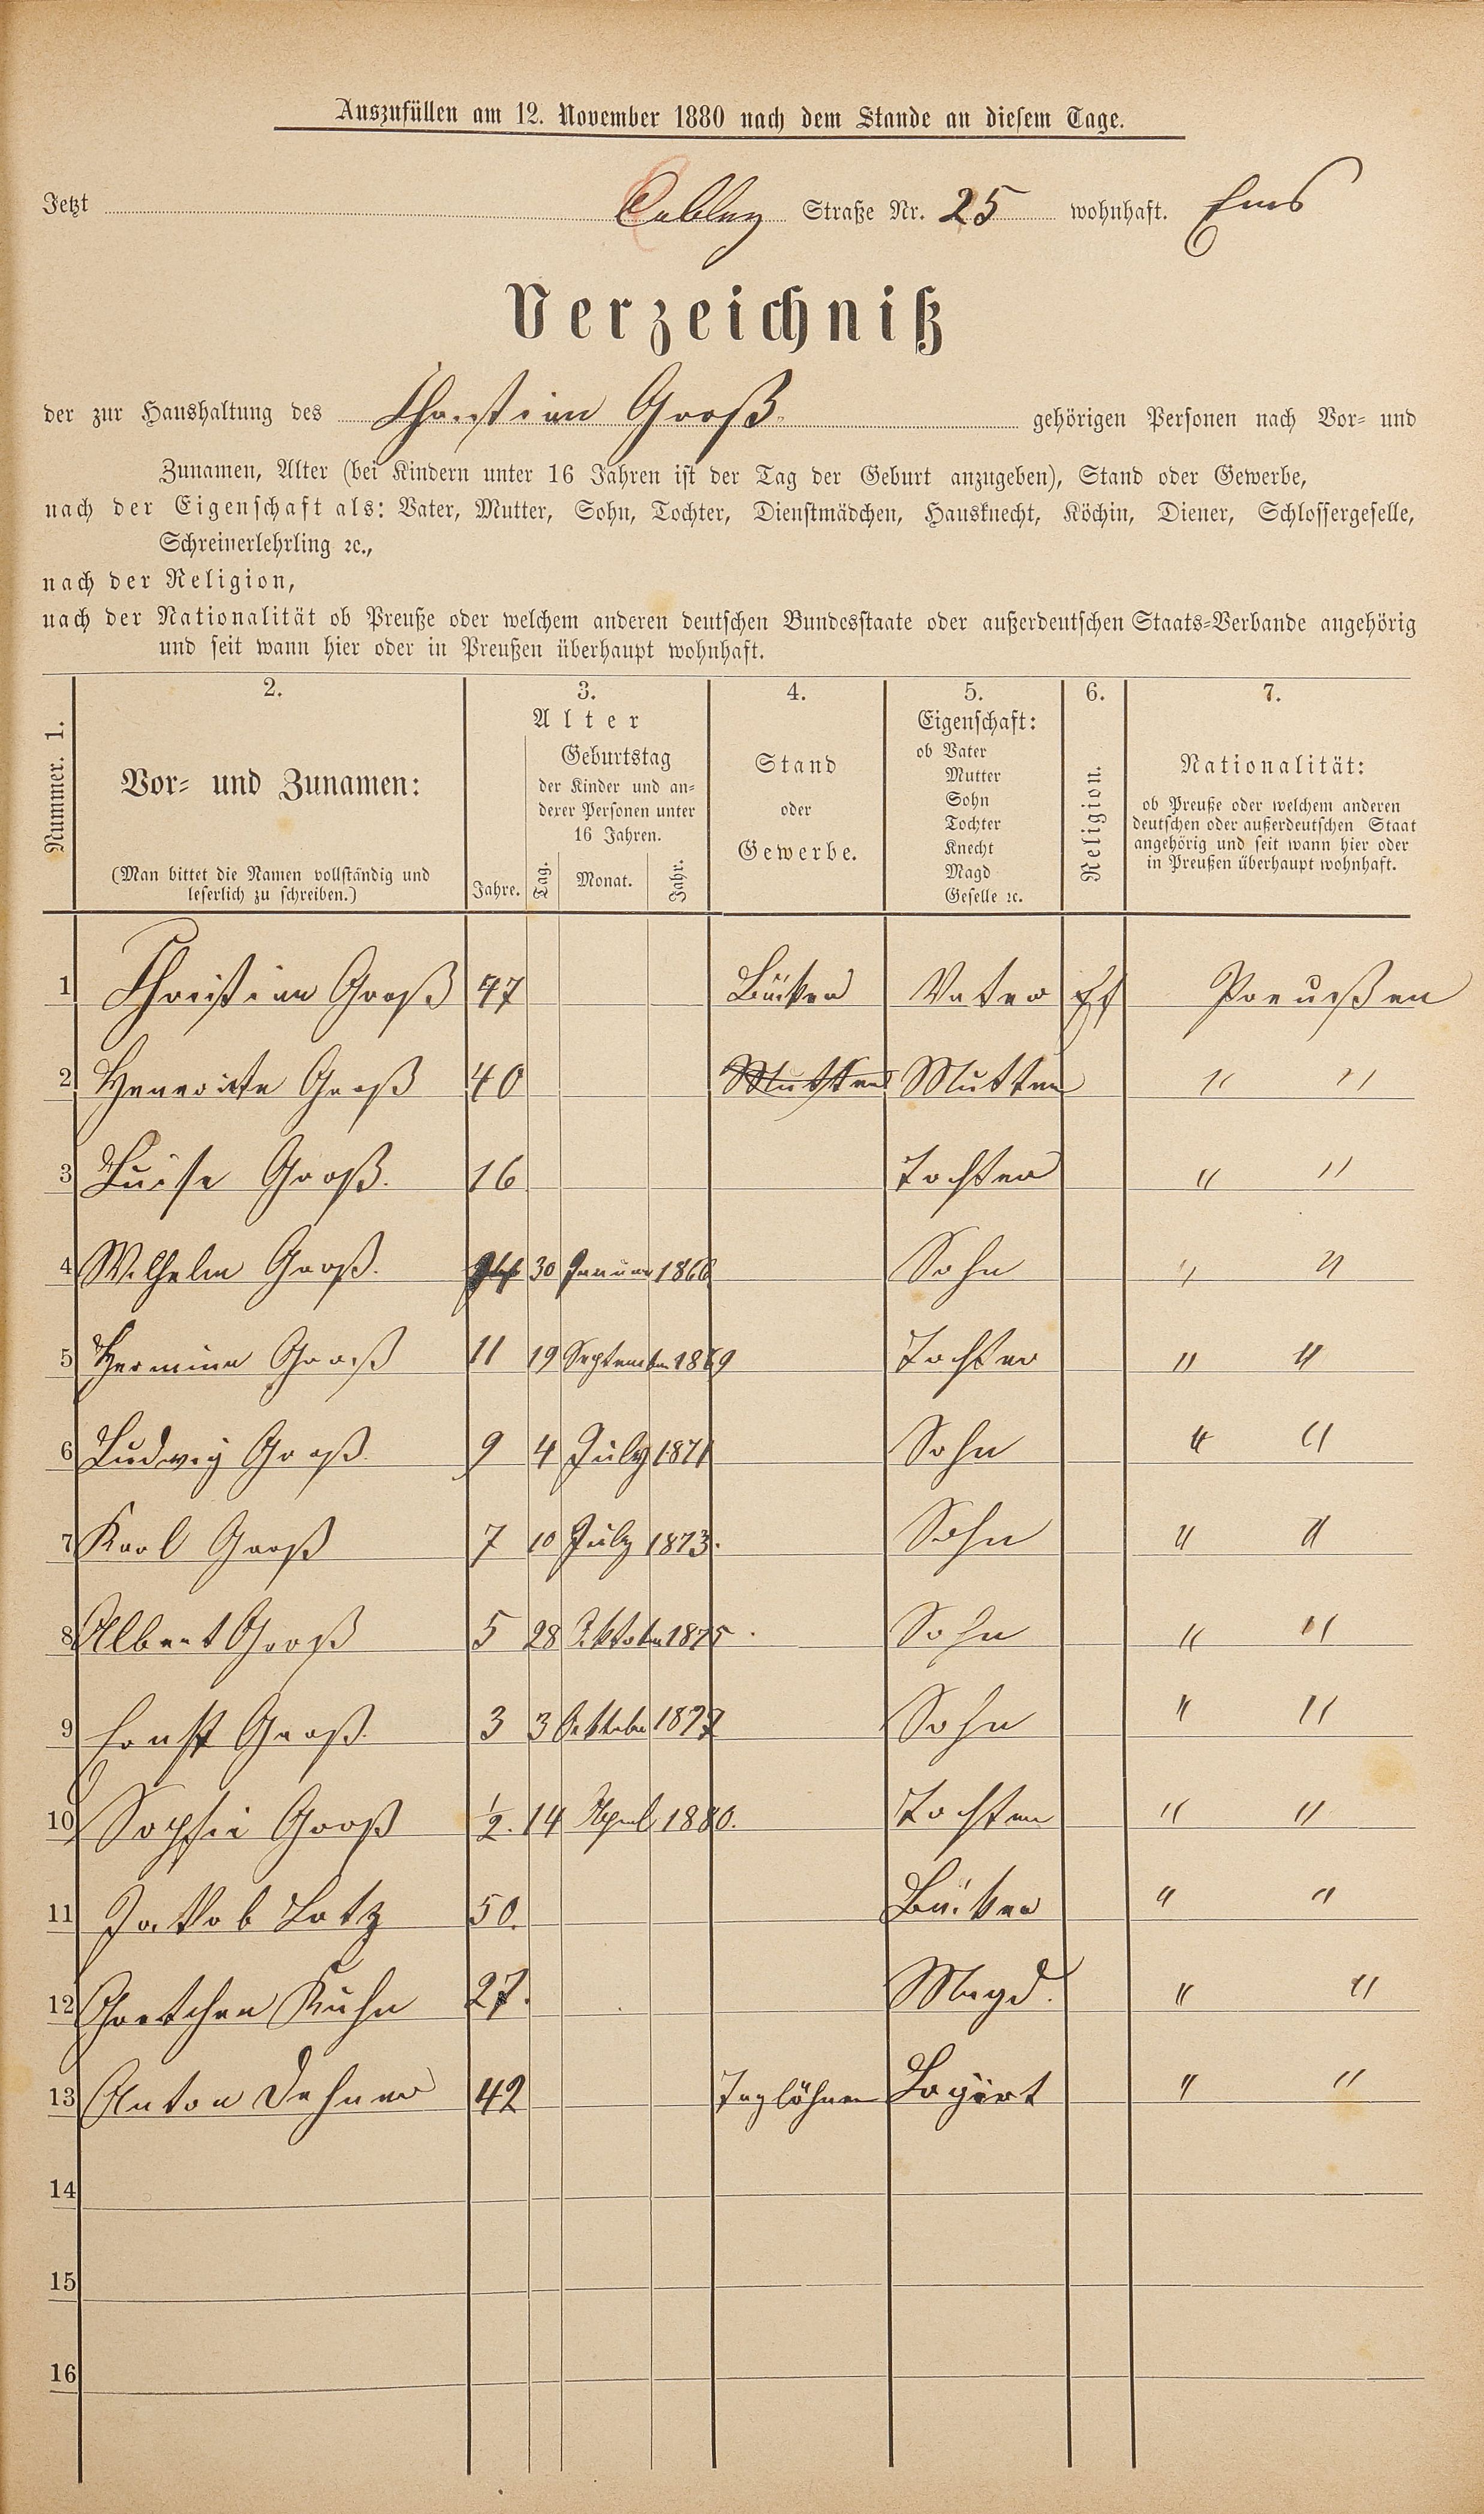 Auszufüllen am 12. November 1880 nach dem Stande an diesem Tage.
Jetzt Coblenz Straße Nr. 25 wohnhaft. Ems
Verzeichniß
der zur Haushaltung des Christian Groß gehörigen Personen nach Vor- und
Zunamen, Alter (bei Kindern unter 16 Jahren ist der Tag der Geburt anzugeben), Stand oder Gewerbe,
nach der Eigenschaft als: Vater, Mutter, Sohn, Tochter, Dienstmädchen, Hausknecht, Köchin, Diener, Schlossergeselle,
Schreinerlehrling ꝛc.,
nach der Religion,
nach der Nationalität ob Preuße oder welchem anderen deutschen Bundesstaate oder außerdeutschen Staats-Verbande angehörig
und seit wann hier oder in Preußen überhaupt wohnhaft.
Nummer. 1.
2.
Vor- und Zunamen:
(Man bittet die Namen vollständig und
leserlich zu schreiben.)
3.
Alter
Jahre.
Geburtstag
der Kinder und an-
derer Personen unter
16 Jahren.
Tag. Monat. Jahr.
4.
Stand
oder
Gewerbe.
5.
Eigenschaft:
ob Vater
Mutter
Sohn
Tochter
Knecht
Magd
Geselle ꝛc.
6.
Religion.
7.
Nationalität:
ob Preuße oder welchem anderen
deutschen oder außerdeutschen Staat
angehörig und seit wann hier oder
in Preußen überhaupt wohnhaft.
1 Christian Groß 47 Bäcker Vater Ev Preußen
2 Henriette Groß 40 Mutter Mutter " "
3 Luise Groß. 16 Tochter " "
4 Wilhelm Groß. 30 Januar 1866 Sohn " "
5 Hermine Groß 11 19 September 1869 Tochter " "
6 Ludwig Groß. 9 4 July 1871 Sohn " "
7 Karl Groß 7 10 July 1873. Sohn " "
8 Albert Groß 5 28 Oktober 1875 Sohn " "
9 Ernst Groß. 3 3 Oktober 1877 Sohn " "
10 Sophie Groß ½. 14 April 1880. Tochter " "
11 Jakob Lotz 50. Bäcker " "
12 Gretchen Kuhn 27. Magd. " "
13 Anton Dehner 42 Taglöhner Logirt " "
14
15
16